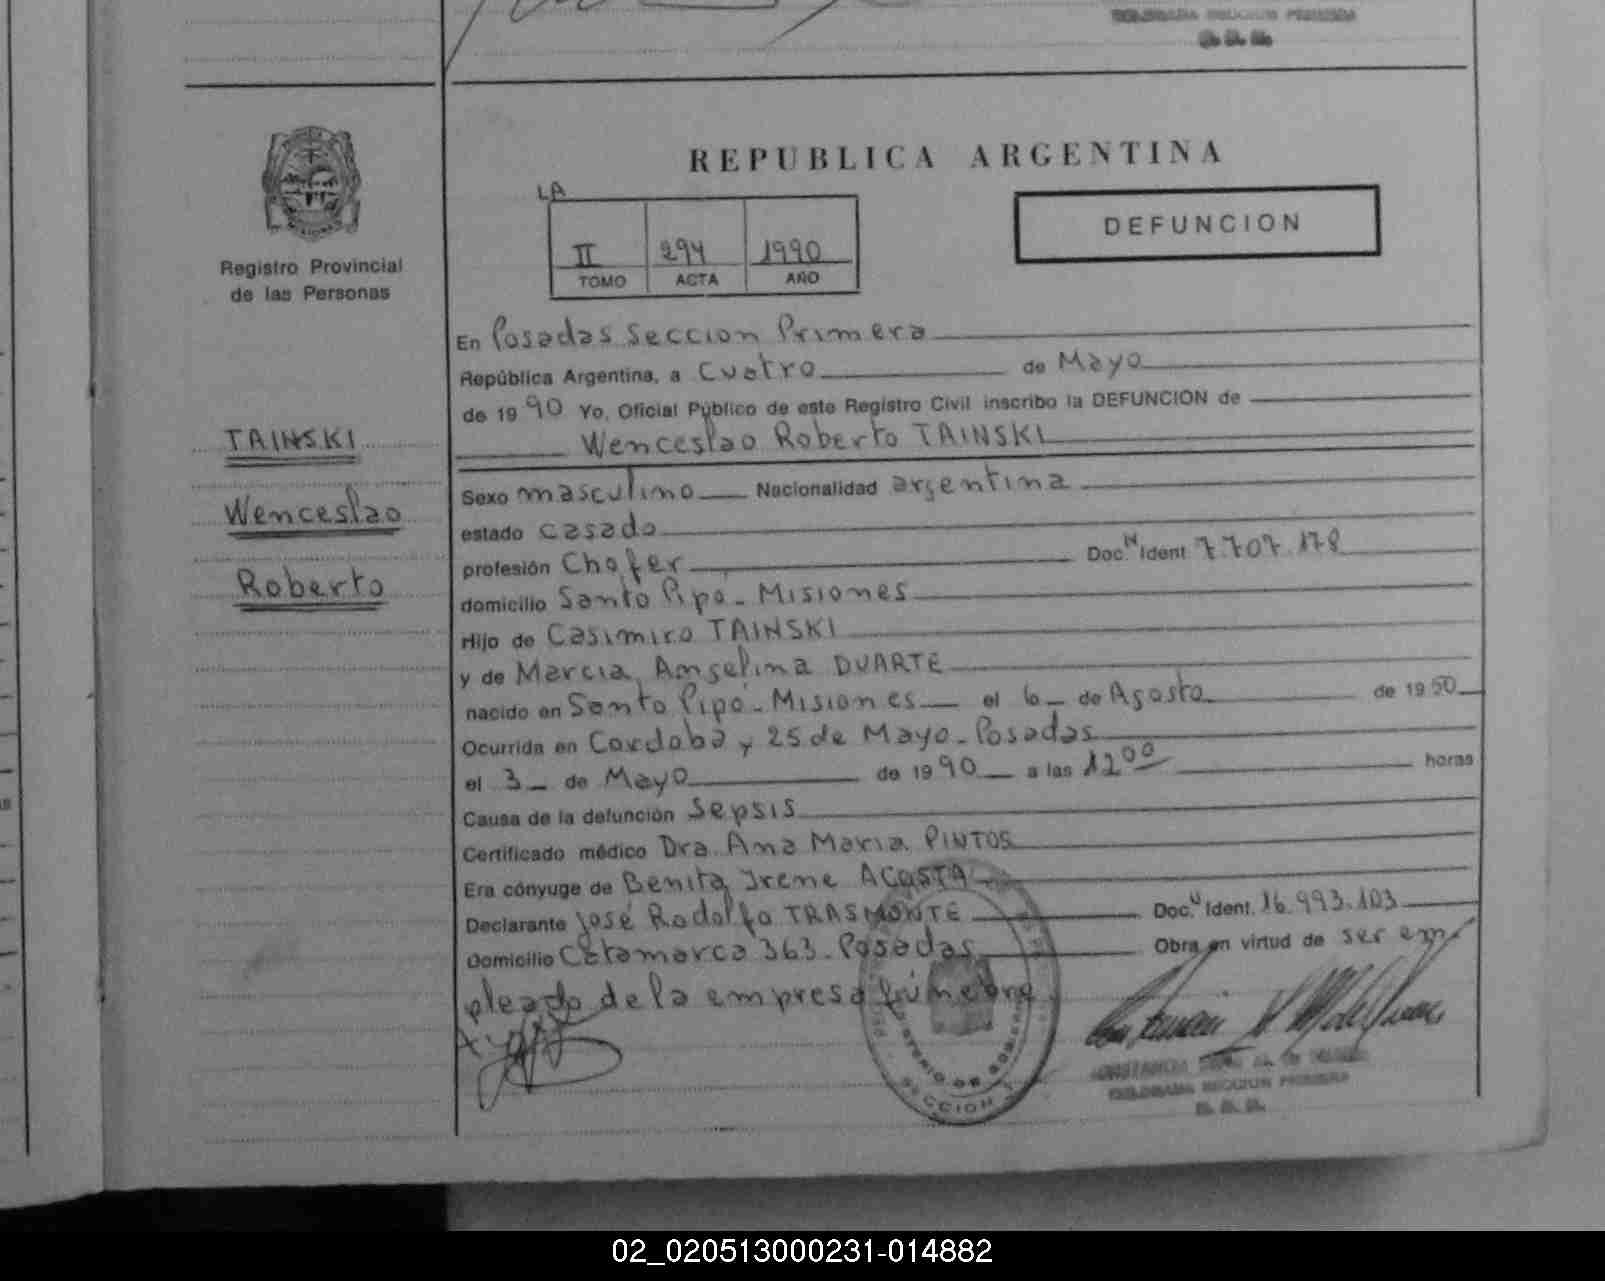 DELEGADA SECCION PRIMERA
REPUBLICA ARGENTINA
LA
DEFUNCION
II 294 1990
TOMO ACTA AÑO
MISIONES
Registro Provincial
de las Personas
TAINSKI
Wenceslao
Roberto
En Posadas Seccion Primera
República Argentina, a Cuatro de Mayo
de 1990 Yo, Oficial Público de este Registro Civil inscribo la DEFUNCION de
Wenceslao Roberto TAINSKI
Sexo masculino Nacionalidad argentina
estado casado
profesión Chofer Doc. N Ident 7.707.178
domicilio Santo Pipó - Misiones
Hijo de Casimiro TAINSKI
y de Marcia Angelina DUARTE
nacido en Santo Pipó - Misiones el 6 de Agosto de 1950
Ocurrida en Cordoba y 25 de Mayo - Posadas
el 3 de Mayo de 1990 a las 12 00 horas
Causa de la defunción Sepsis
Certificado médico Dra. Ana Maria PINTOS
Era cónyuge de Benita Irene ACOSTA
Declarante José Rodolfo TRASMONTE Doc. N Ident. 16.993.103
Domicilio Catamarca 363 - Posadas Obra en virtud de ser em-
pleado de la empresa fúnebre.
SECCION
DELEGADA SECCION PRIMERA
02_020513000231-014882